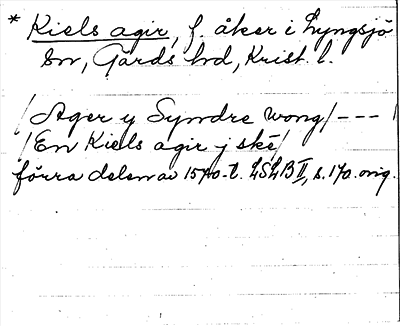 * Kiels agir, f. åker i Lyngsjö
sn, Gärds hd, Krist. l.
/Ager y Syndre wong/ - - - /
/En Kiels agir j ské/
förra delen av 1570-t. LSLB II, s. 170. orig.